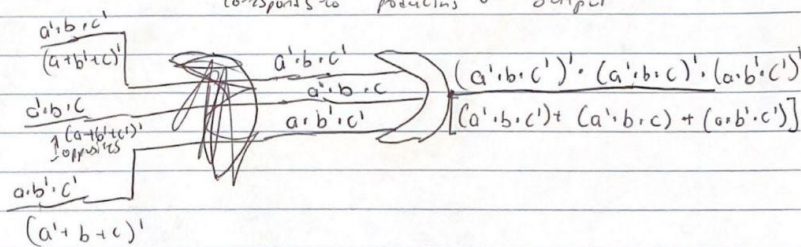 corresponds to producing output
a'·b·c'
(a+b'+c)'
a'·b·c
(a+b'+c')'
opposites
a·b'·c'
(a'+b+c)'
a'·b·c'
a'·b·c
a·b'·c'
(a'·b·c')'·(a'·b·c)'·(a·b'·c')'
[(a'·b·c')+(a'·b·c)+(a·b'·c')]